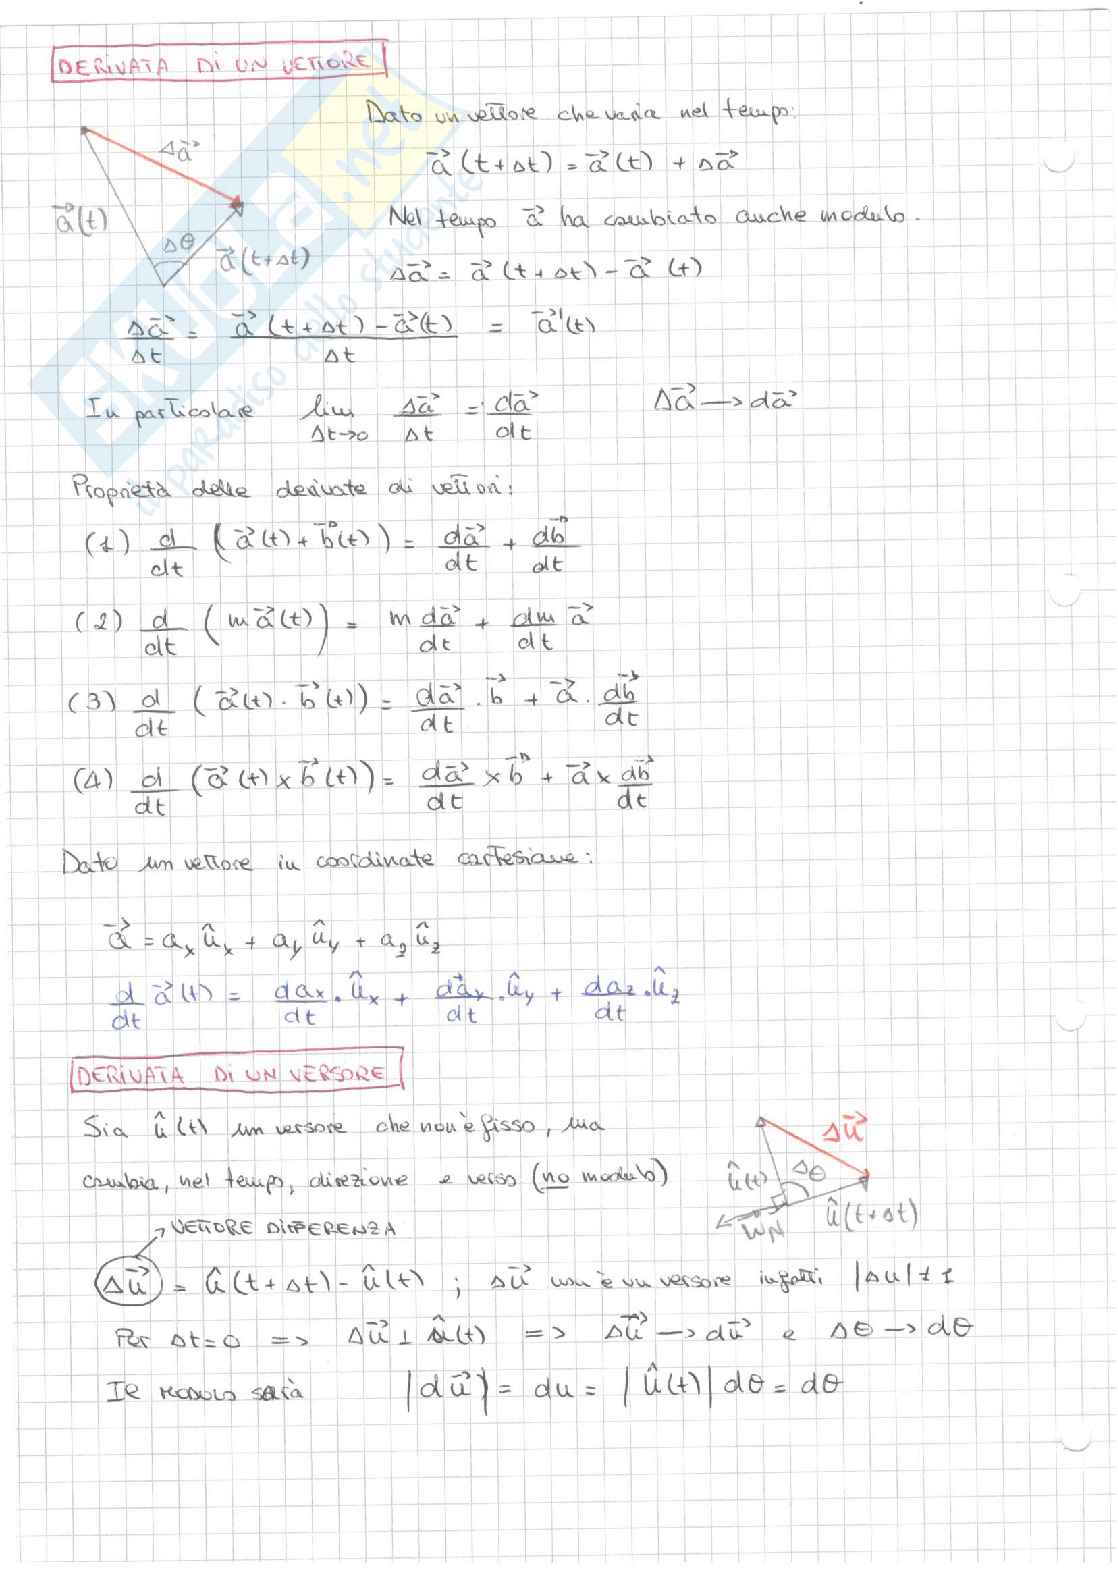 DERIVATA DI UN VETTORE
Dato un vettore che varia nel tempo:
Δa⃗
a⃗(t+Δt) = a⃗(t) + Δa⃗
a⃗(t)
Nel tempo a⃗ ha cambiato anche modulo.
Δθ
a⃗(t+Δt)
Δa⃗ = a⃗(t+Δt) - a⃗(t)
Δa⃗/Δt = (a⃗(t+Δt) - a⃗(t))/Δt = a⃗'(t)
In particolare lim Δt→0 Δa⃗/Δt = da⃗/dt Δa⃗ → da⃗
Proprietà delle derivate di vettori:
(1) d/dt (a⃗(t) + b⃗(t)) = da⃗/dt + db⃗/dt
(2) d/dt (m a⃗(t)) = m da⃗/dt + dm/dt a⃗
(3) d/dt (a⃗(t) · b⃗(t)) = da⃗/dt · b⃗ + a⃗ · db⃗/dt
(4) d/dt (a⃗(t) × b⃗(t)) = da⃗/dt × b⃗ + a⃗ × db⃗/dt
Dato un vettore in coordinate cartesiane:
a⃗ = aₓ ûₓ + a_y û_y + a_z û_z
d/dt a⃗(t) = daₓ/dt · ûₓ + da_y/dt · û_y + da_z/dt · û_z
DERIVATA DI UN VERSORE
Sia û(t) un versore che non è fisso, ma
cambia, nel tempo, direzione e verso (no modulo)
Δu⃗
û(t)
Δθ
û(t+Δt)
u_N
VETTORE DIFFERENZA
Δu⃗ = û(t+Δt) - û(t) ; Δu⃗ non è un versore infatti |Δu| ≠ 1
Per Δt=0 => Δu⃗ ⊥ û(t) => Δu⃗ → du⃗ e Δθ → dθ
Il modulo sarà |du⃗| = du = |û(t)| dθ = dθ
SKUOLA.net
il paradiso dello studente